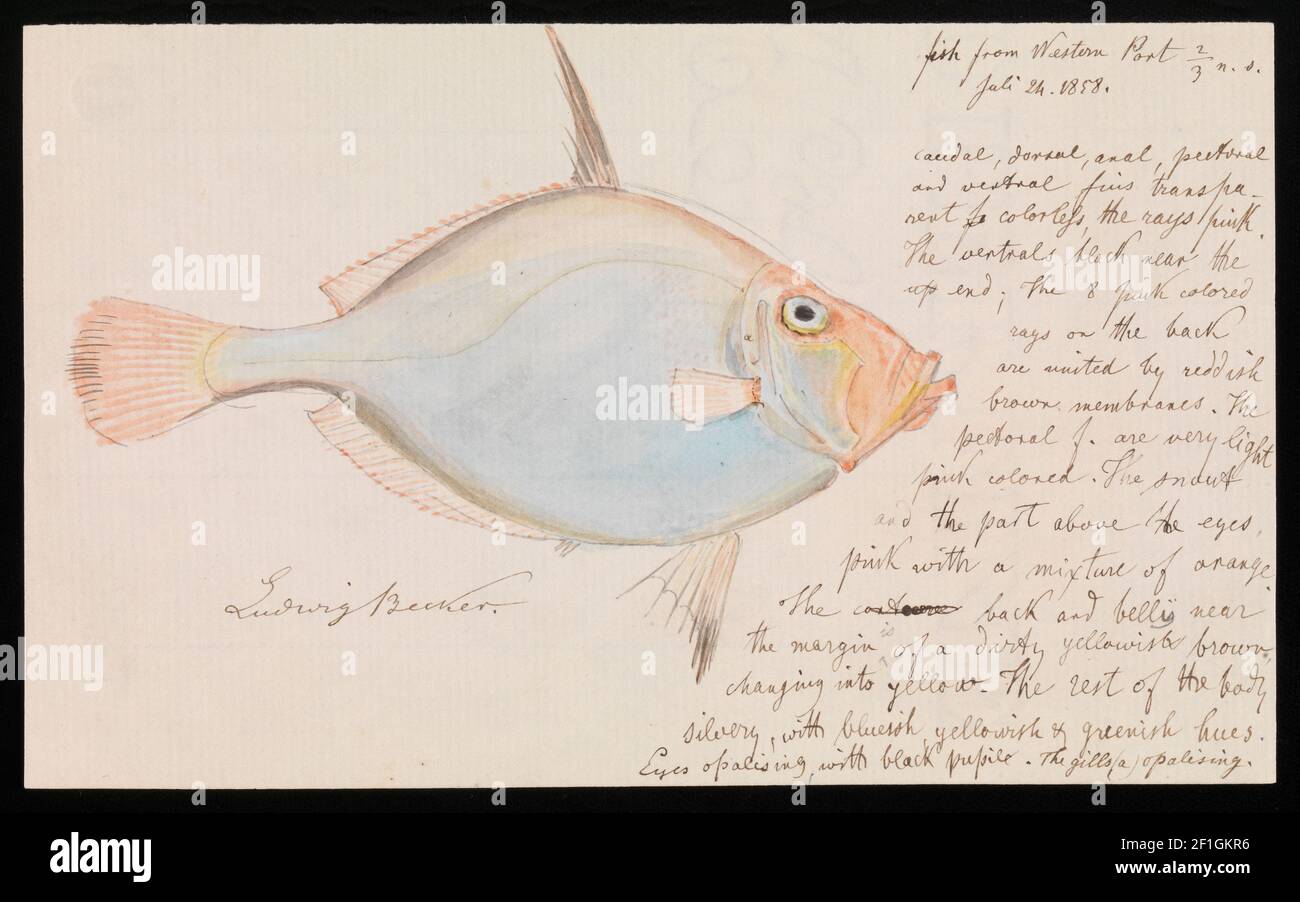 fish from Western Port 2/3 n. s.
Juli 24. 1858.
caudal, dorsal, anal, pectoral
and ventral fins transpa-
rent & colorless, the rays pink.
The ventrals black near the
up end; The 8 pink colored
rays on the back
are united by reddish
brown membranes. The
pectoral f. are very light
pink colored. The snout
and the part above the eyes,
pink with a mixture of orange.
The back and belly near
the margin is of a dirty yellowish brown,
changing into yellow. The rest of the body
silvery, with bluesish, yellowish & greenish hues.
Eyes opalising, with black pupile. The gills (a) opalising.
a
Ludwig Becker.
alamy
Image ID: 2F1GKR6
www.alamy.com